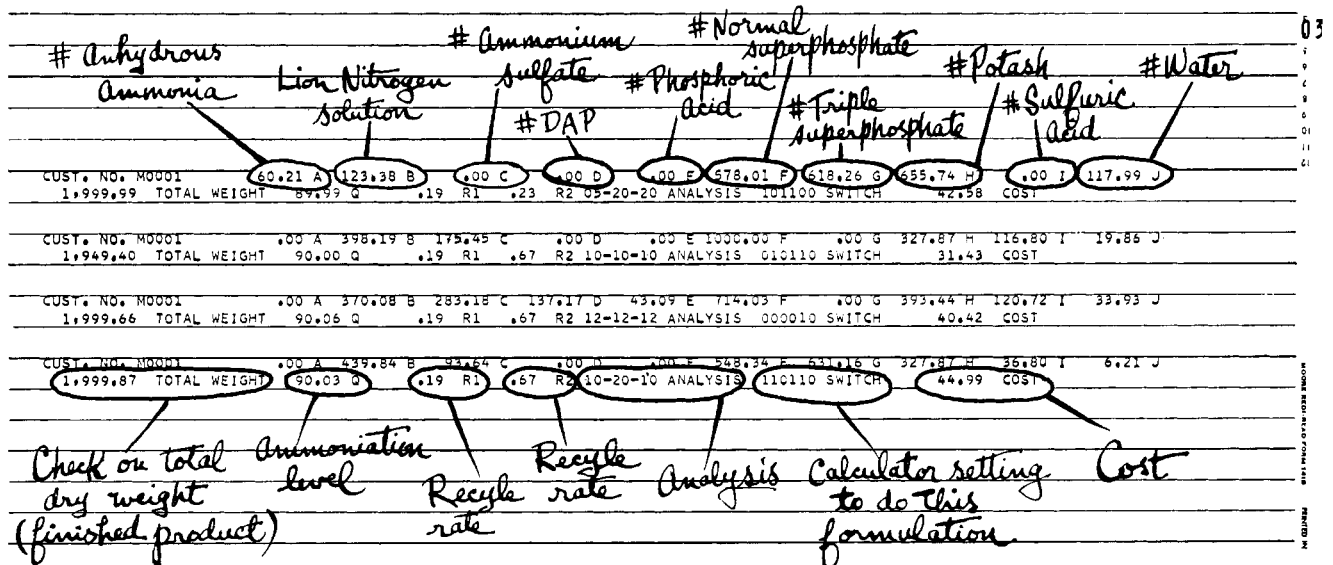 03
# Anhydrous
Ammonia
Lion Nitrogen
solution
# Ammonium
sulfate
# DAP
# Phosphoric
acid
# Normal
superphosphate
# Triple
superphosphate
# Potash
# Sulfuric
acid
# Water
CUST. NO. M0001 60.21 A 123.38 B .00 C .00 D .00 E 578.01 F 618.26 G 655.74 H .00 I 117.99 J
1,999.99 TOTAL WEIGHT 89.99 Q .19 R1 .23 R2 05-20-20 ANALYSIS 101100 SWITCH 42.58 COST
CUST. NO. M0001 .00 A 398.19 B 175.45 C .00 D .00 E 1000.00 F .00 G 327.87 H 116.80 I 19.86 J
1,949.40 TOTAL WEIGHT 90.00 Q .19 R1 .67 R2 10-10-10 ANALYSIS 010110 SWITCH 31.43 COST
CUST. NO. M0001 .00 A 370.08 B 283.18 C 137.17 D 43.09 E 714.03 F .00 G 393.44 H 120.72 I 33.93 J
1,999.66 TOTAL WEIGHT 90.06 Q .19 R1 .67 R2 12-12-12 ANALYSIS 000010 SWITCH 40.42 COST
CUST. NO. M0001 .00 A 439.84 B 93.64 C .00 D .00 E 548.34 F 631.16 G 327.87 H 36.80 I 6.21 J
1,999.87 TOTAL WEIGHT 90.03 Q .19 R1 .67 R2 10-20-10 ANALYSIS 110110 SWITCH 44.99 COST
Check on total
dry weight
(finished product)
Ammoniation
level
Recyle
rate
Recyle
rate
Analysis
Calculator setting
to do this
formulation
Cost